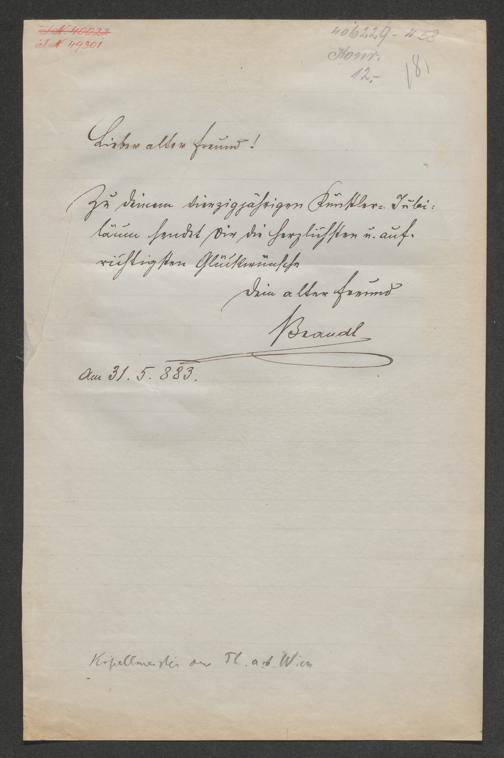 I N 49301
406229- 
Konv.
12,-
181
Lieber alter Freund!
Zu deinem vierzigjährigen Künstler-Jubi-
läum sendet Dir die herzlichsten u. auf-
richtigsten Glückwünsche
Dein alter Freund
Brandl
Am 31. 5. 883.
Kapellmeister am Th. a. d. Wien